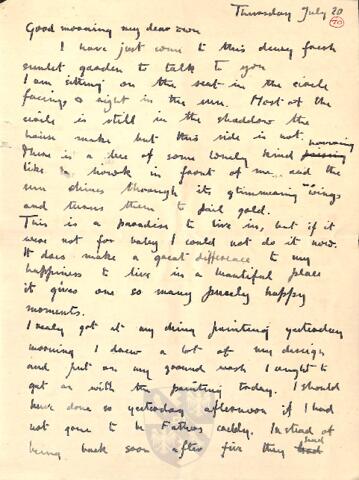 Thursday July 20
70
Good morning my dear own
I have just come to this dewy fresh
sunlit garden to talk to you
I am sitting on the seat in the circle
facing right in the sun. Most of the
circle is still in the shadow the
house make but this side is not.
There is a bee of some lonely kind hovering
like a hawk in front of me and the
sun shines through its glimmering wings
and turns them to gold.
This is a paradise to live in, but if it
were not for baby I could not do it now.
It does make a great difference to my
happiness to live in a beautiful place
it gives one so many purely happy
moments.
I really got at my painting yesterday
morning I drew a lot of my design
and put on my ground wash I ought to
get on with the painting today. I should
have done so yesterday afternoon if I had
not gone to be Fathers caddy. Instead of
being back soon after five they had